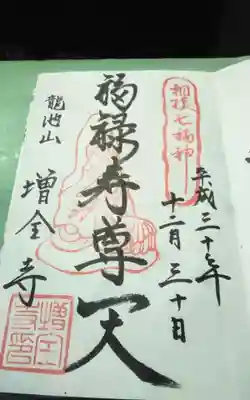 相模七福神
平成二十年
十二月三十日
福禄寿尊天
龍池山
増全寺